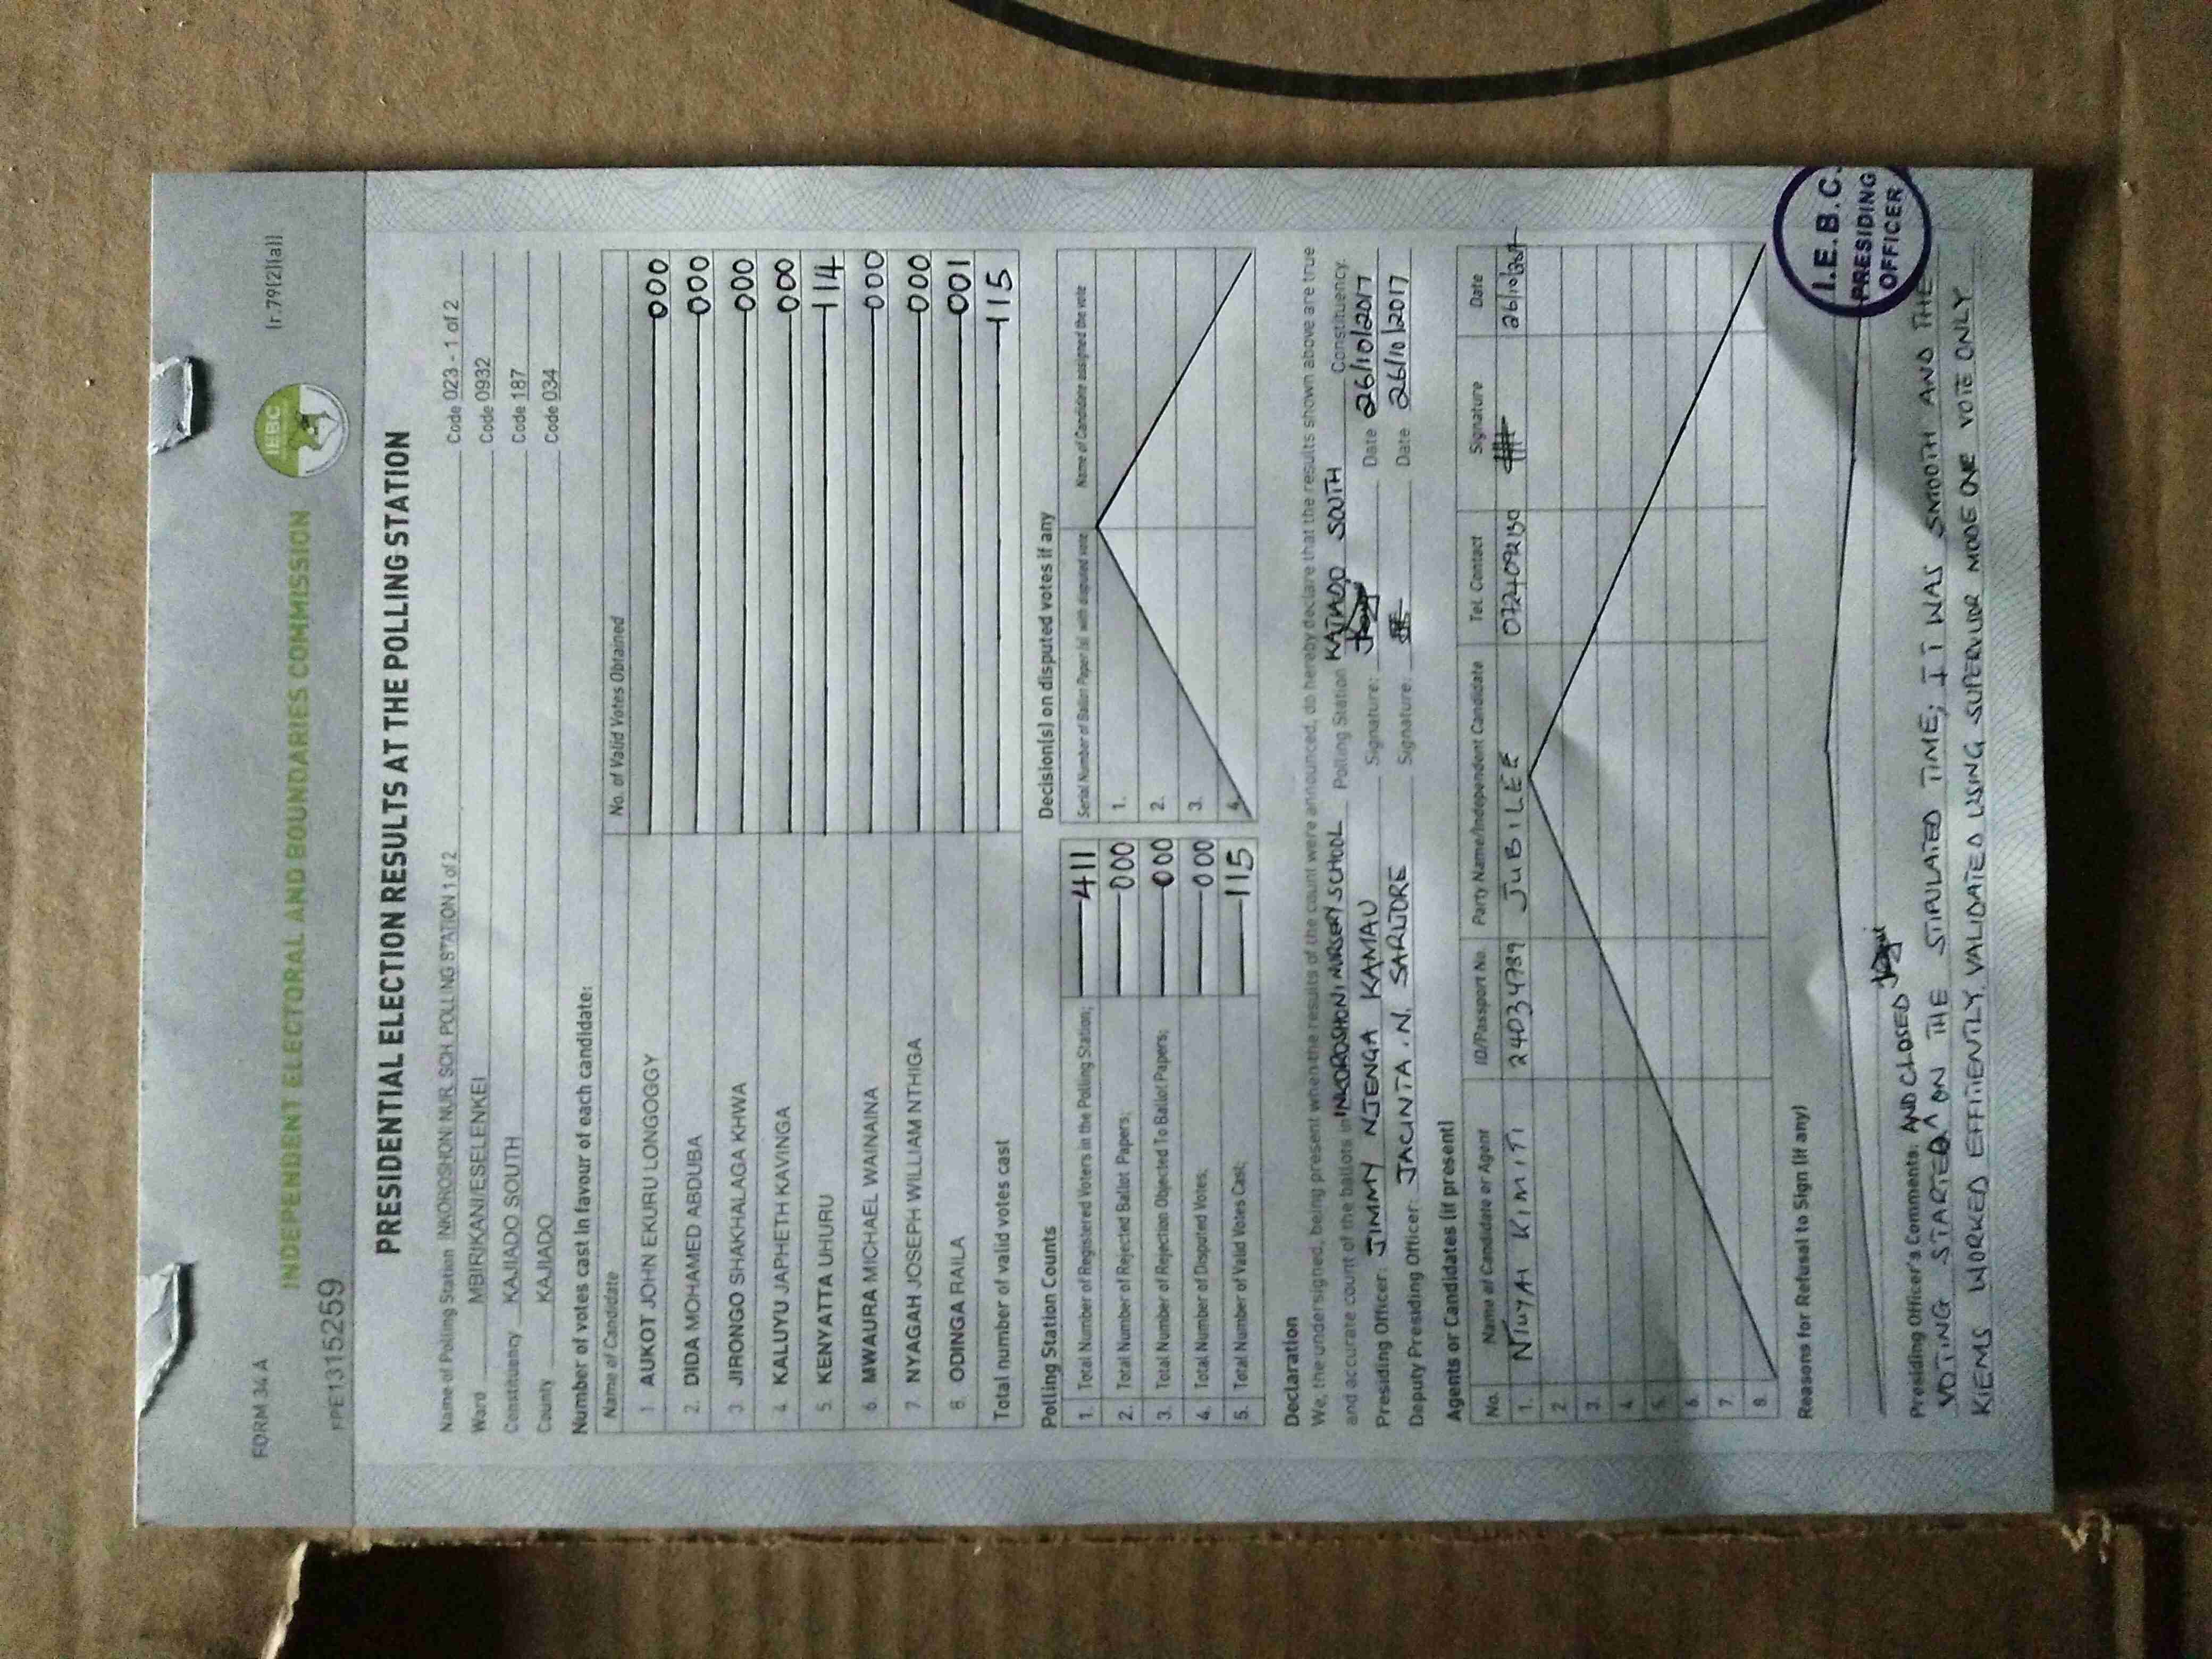 FORM 34 A
[r.79(2)(a)]
INDEPENDENT ELECTORAL AND BOUNDARIES COMMISSION
IEBC
FPE1315259
PRESIDENTIAL ELECTION RESULTS AT THE POLLING STATION
Name of Polling Station INKOROSHONI NUR. SCH. POLLING STATION 1 of 2 Code 023 - 1 of 2
Ward MBIRIKANI/ESELENKEI Code 0932
Constituency KAJIADO SOUTH Code 187
County KAJIADO Code 034
Number of votes cast in favour of each candidate:
Name of Candidate No. of Valid Votes Obtained
1. AUKOT JOHN EKURU LONGOGGY 000
2. DIDA MOHAMED ABDUBA 000
3. JIRONGO SHAKHALAGA KHWA 000
4. KALUYU JAPHETH KAVINGA 000
5. KENYATTA UHURU 114
6. MWAURA MICHAEL WAINAINA 000
7. NYAGAH JOSEPH WILLIAM NTHIGA 000
8. ODINGA RAILA 001
Total number of valid votes cast 115
Polling Station Counts
1. Total Number of Registered Voters in the Polling Station; 411
2. Total Number of Rejected Ballot Papers; 000
3. Total Number of Rejection Objected To Ballot Papers; 000
4. Total Number of Disputed Votes; 000
5. Total Number of Valid Votes Cast; 115
Decision(s) on disputed votes if any
Serial Number of Ballot Paper (s) with disputed vote Name of Candidate assigned the vote
1.
2.
3.
4.
Declaration
We, the undersigned, being present when the results of the count were announced, do hereby declare that the results shown above are true
and accurate count of the ballots in INKOROSHONI NURSERY SCHOOL Polling Station KAJIADO SOUTH Constituency.
Presiding Officer: JIMMY NJENGA KAMAU Signature: Date 26/10/2017
Deputy Presiding Officer: JACINTA .N. SARUORE Signature: Date 26/10/2017
Agents or Candidates (if present)
No. Name of Candidate or Agent ID/Passport No. Party Name/Independent Candidate Tel. Contact Signature Date
1. KIMITI 24034789 JUBILEE 0724092130 26/10/2017
2.
3.
4.
5.
6.
7.
8.
Reasons for Refusal to Sign (if any)
I.E.B.C.
PRESIDING
OFFICER
Presiding Officer's Comments: AND CLOSED
VOTING STARTED ^ ON THE STIPULATED TIME; IT WAS SMOOTH AND THE
KIEMS WORKED EFFITIENTLY. VALIDATED USING SUPERVIOR MODE ONE VOTE ONLY